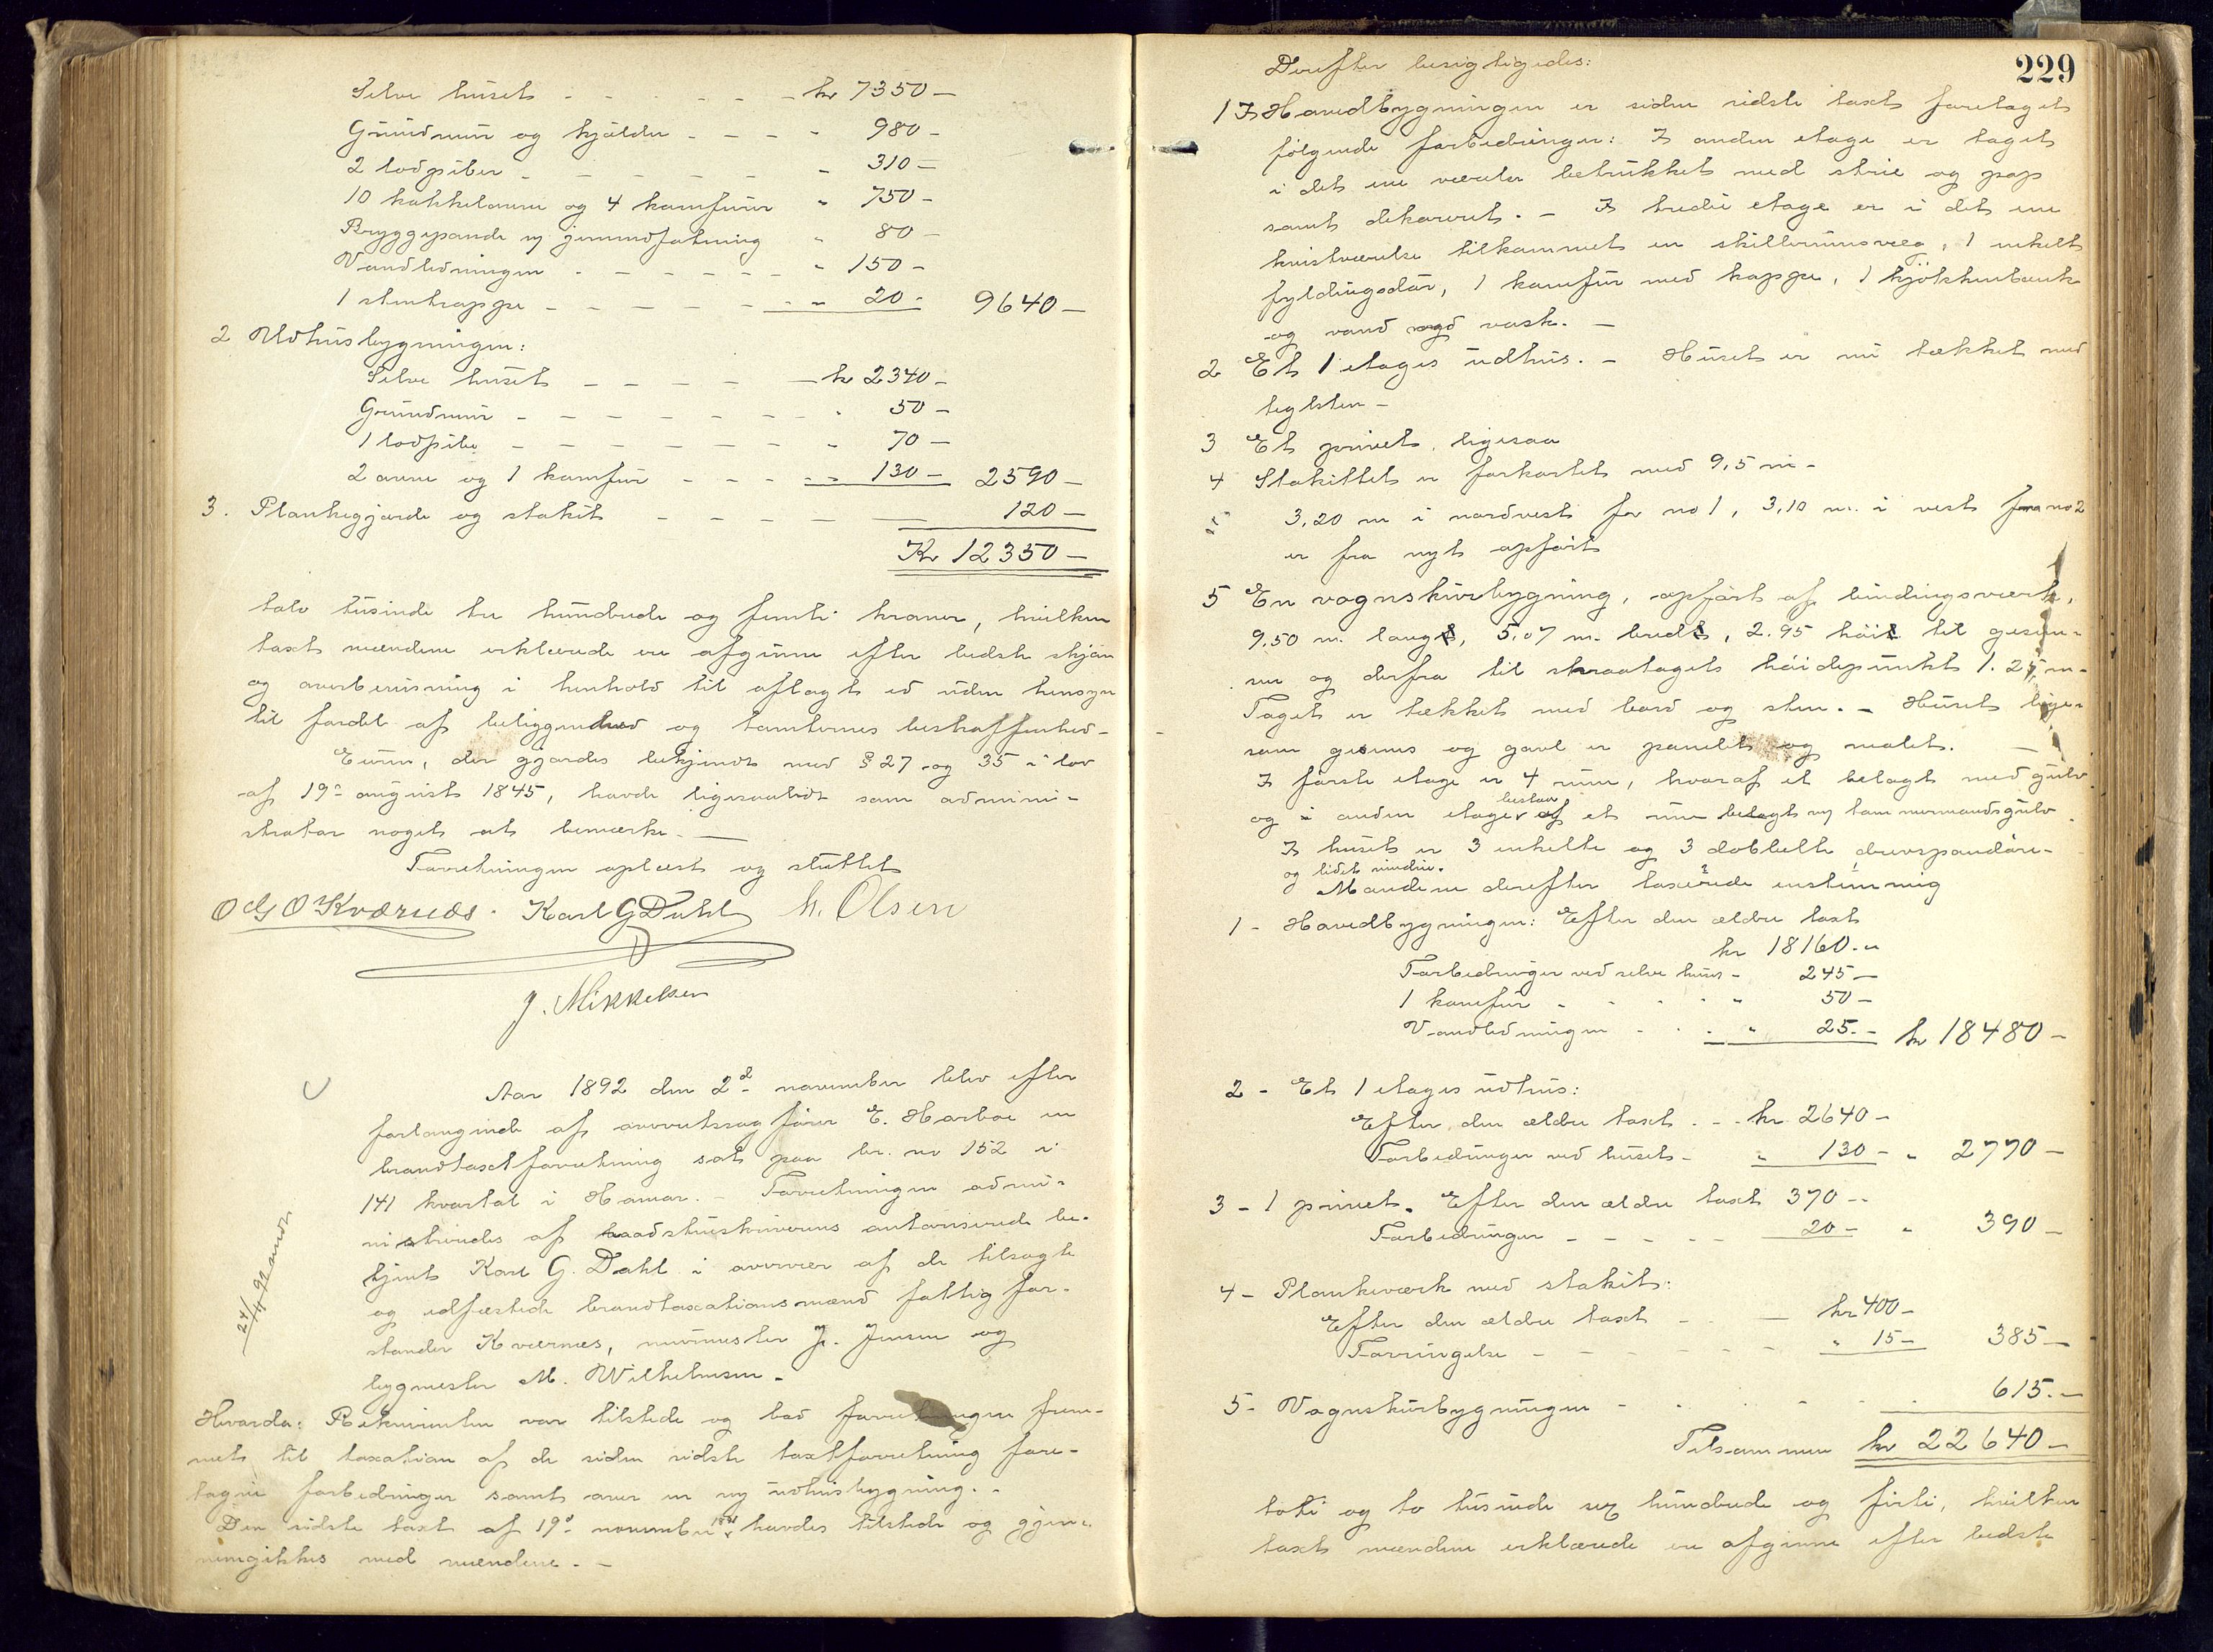 Selve huset - - - - - - kr 7350 -
Grundmur og kjælder - - - - 980 -
2 lodpiber - - - - - - 310 -
10 kakkelovne og 4 komfurer " 750 -
Bryggepande m jernindfatning " 80 -
Vandledningen - - - - - - " 150 -
1 stentrappe - - - - - - " 20 - 9640 -
2 Udhusbygningen:
Selve huset - - - - - kr 2340 -
Grundmur - - - - - - - " 50 -
1 lodpibe - - - - - - - " 70 -
2 arner og 1 komfur - - - - " 130 - 2590 -
3. Plankegjærde og stakit - - - - - 120 -
Kr 12350 -
tolv tusinde tre hundrede og femti kroner, hvilken
taxt mændene erklærede at afgivne efter bedste skjøn
og overbevisning i henhold til aflagt ed uden hensyn
til fordel af beliggenhed og tomternes beskaffenhed -
Eieren, der gjordes bekjendt med § 27 og 35 i lov
af 19de august 1845, havde ligesaalidt som admini-
strator noget at bemærke. -
Forretningen oplæst og sluttet
O G O Kværnes. Karl G Dahl h. Olsen
J. Mikkelsen
Aar 1892 den 2d november blev efter
forlangende af overretssagfører E. Harboe en
brandtaxtforretning sat paa br. no 152 i
141 kvartal i Hamar. - Forretningen admi-
nistreredes af raadstueskriverens autoriserede be-
tjent Karl G. Dahl i overvær af de tilsagte
og edfæstede brandtaxationsmænd fattigfor-
stander Kværnes, murmester J. Jensen og
bygmester M. Wilhelmsen. -
24/11 92 sendt
Hvorda: Rekvirenten var tilstede og bad forretningen frem-
met til taxation af de siden sidste taxtforretning fore-
tagne forbedringer samt over en ny udhusbygning. -
Den sidste taxt af 19de november havdes tilstede og gjen-
nemgikkes med mændene. -
229
Derefter besigtigedes:
1 I Hovedbygningen er siden sidste taxt foretaget
følgende forbedringer: I anden etage er taget
i det ene værelse betrukket med strie og pap
samt dekoreret. - I tredie etage er i det ene
kvistværelse tilkommet en skillerumsvæg, 1 enkelt
fyldingsdør, 1 komfur med kappe, 1 kjøkkenbænk
og vand med vask. -
2 Et 1 etages udhus. - Huset er nu tækket med
teglsten -
3 Et privet, ligesaa
4 Stakittet er forkortet med 9,5 m -
3,20 m i nordvest for no 1, 3,10 m. i vest for no 2
er fra nyt opført
5 En vognskurbygning, opført af bindingsverk,
9.50 m. lang, 5.07 m. bred, 2.95 høi til gesim-
sen og derfra til skraatagets høidepunkt 1.25 m -
Taget er tækket med bord og sten. - Huset lige-
som gesims og gavl er panelet og malet. -
I første etage er 4 rum, hvoraf et belagt med gulv
og anden etage bestaar af et rum belagt m tømmermandsgulv.
I huset er 3 enkelte og 3 dobbelte drevspandøre -
og lidet mindre.
Mændene derefter taxerede enstemmig
1 - Hovedbygningen: Efter den ældre taxt
kr 18160. -
Forbedringer ved selve huset - 245 -
1 komfur - - - - " 50 -
Vandledningen - - - " 25. - kr 18480 -
2 - Et 1 etages udhus:
Efter den ældre taxt - - kr 2640 -
Forbedringer ved huset - " 130 - " 2770 -
3 - 1 privet. Efter den ældre taxt 370 -
Forbedringer - - - - - 20 - " 390 -
4 - Plankeværk med stakit:
Efter den ældre taxt - - - kr 400 -
Forringelse - - - - - - " 15 - 385 -
5 - Vognskurbygningen - - - - - 615. -
Tilsammen kr 22640 -
toti og to tusinde sex hundrede og firti, hvilken
taxt mændene erklærede at afgivne efter bedste